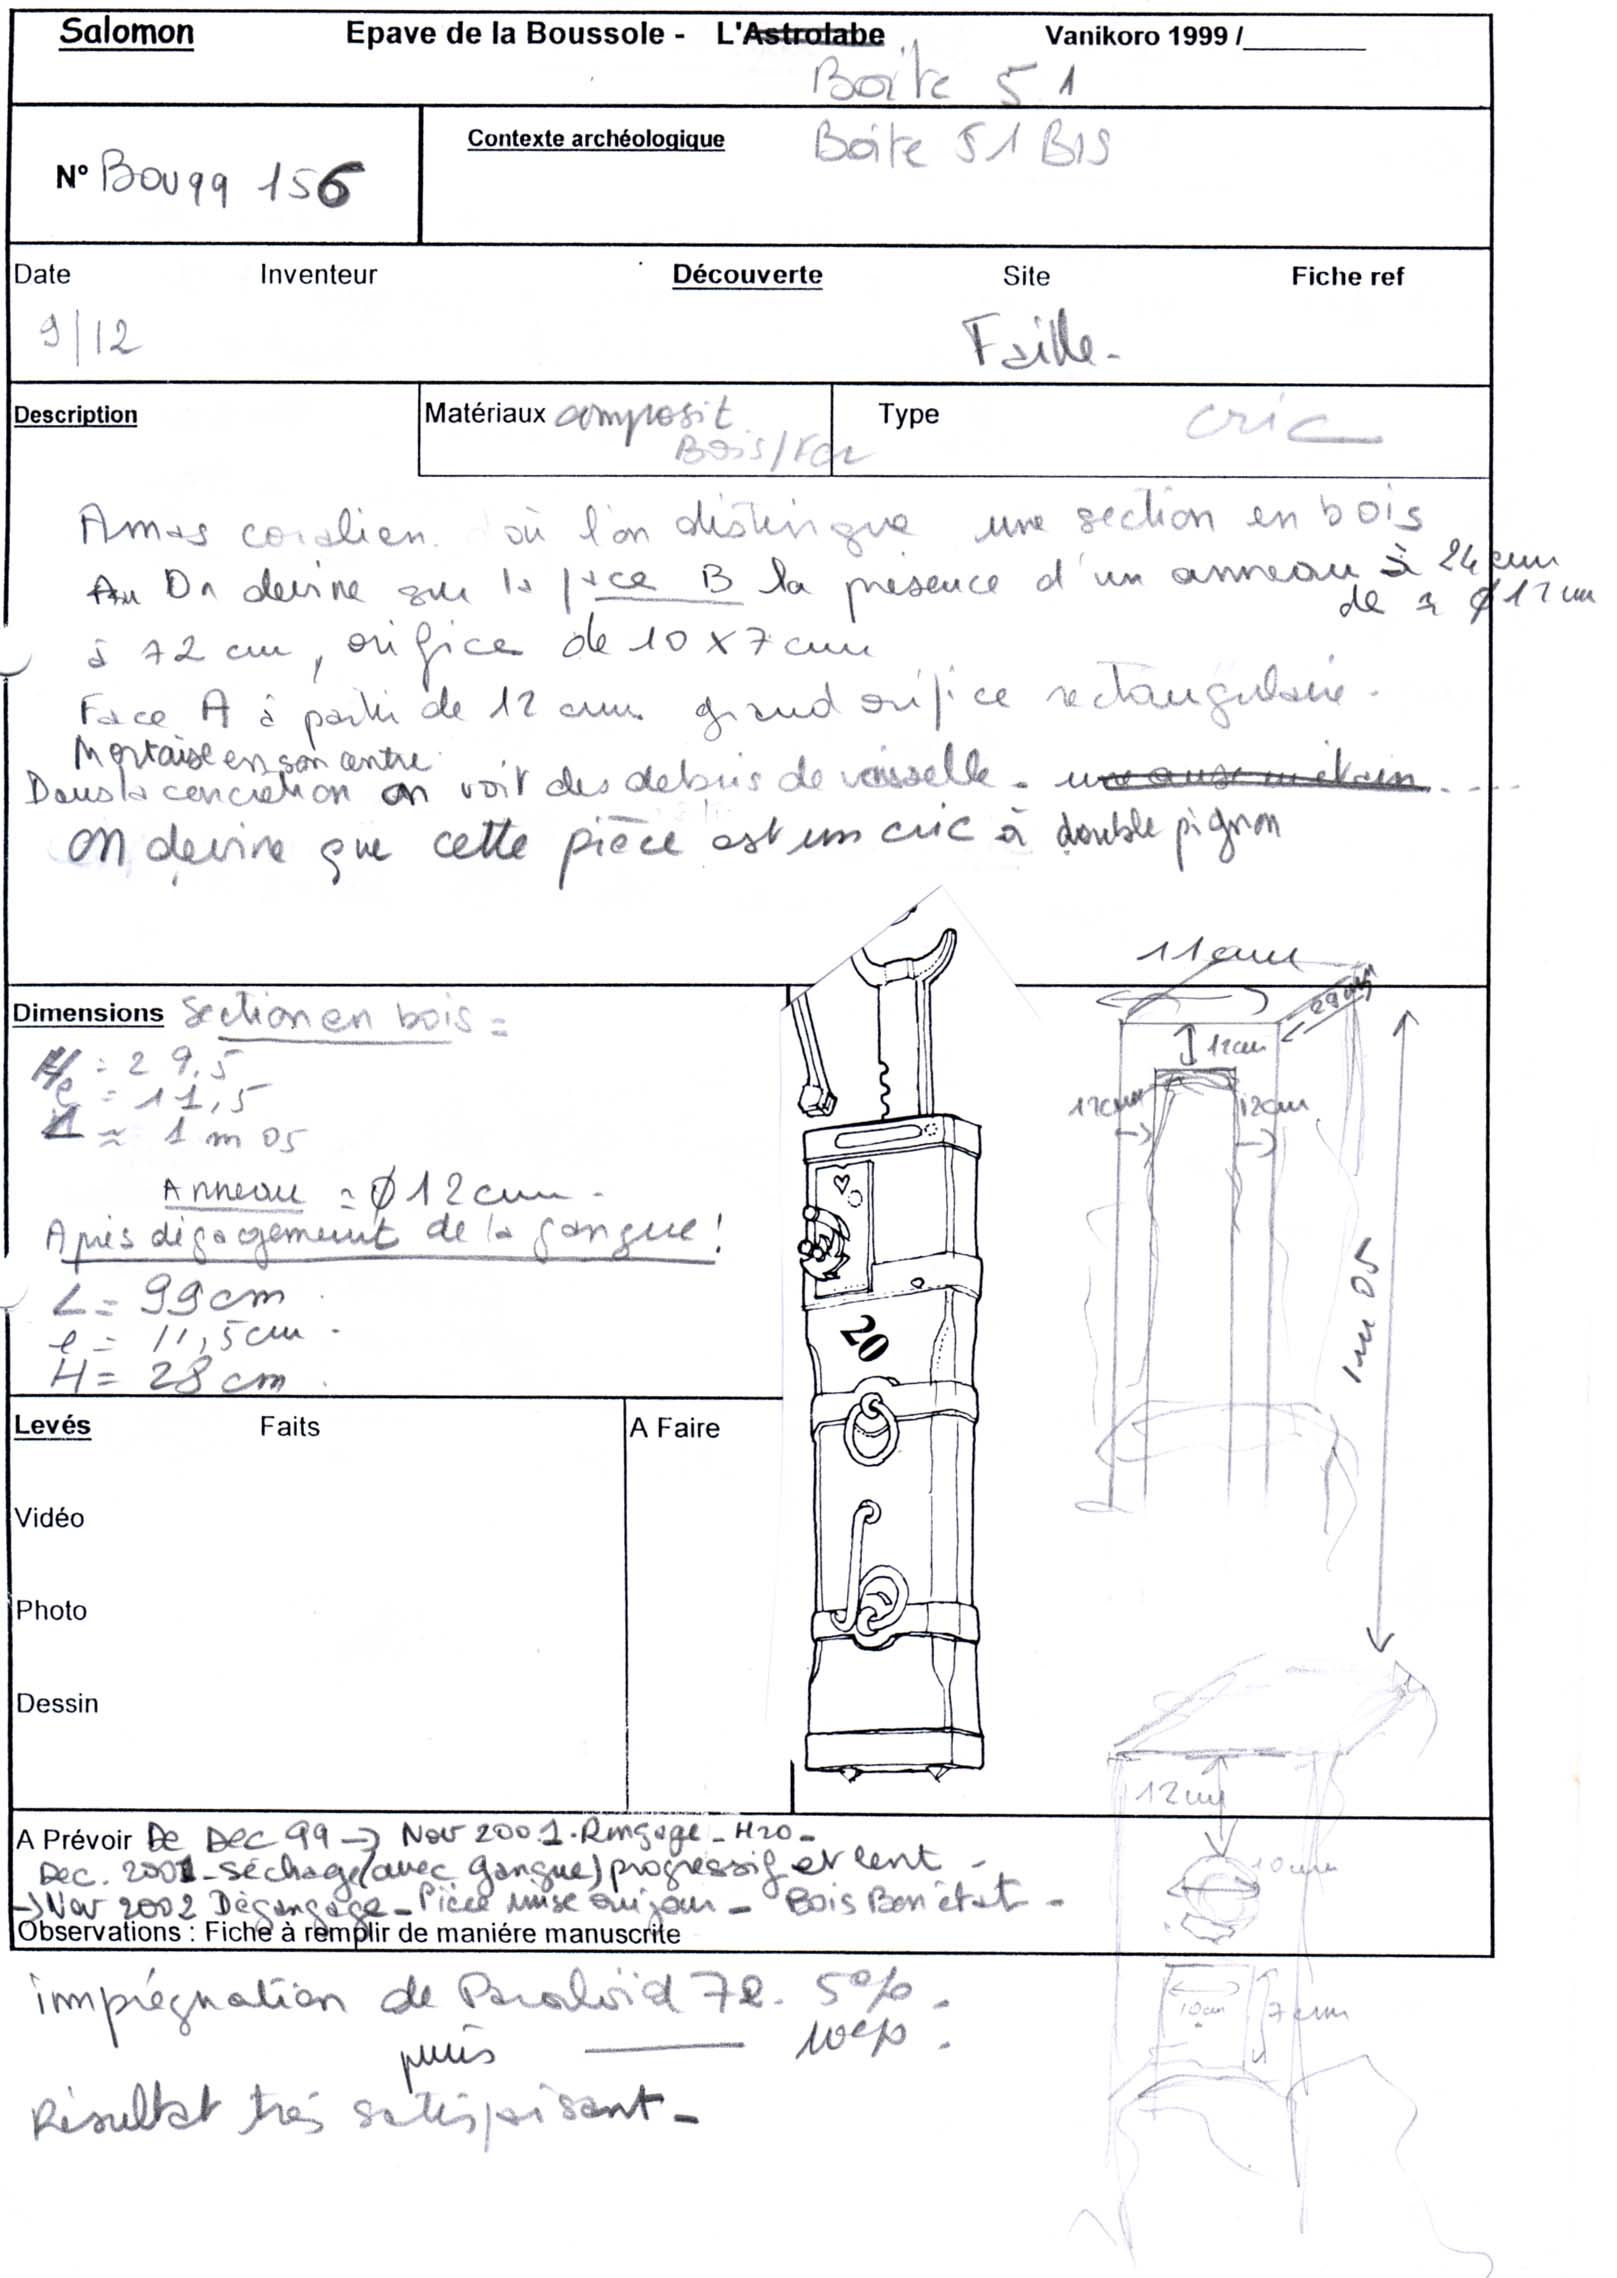 Salomon Epave de la Boussole - L'Astrolabe Vanikoro 1999 /
Boite 51
N° Bou99 156 Contexte archéologique Boite 51 BIS
Date Inventeur Découverte Site Fiche ref
9/12 Faille -
Description Matériaux composit Type cric
Bois/Fer
Amas coralien où l'on distingue une section en bois
On devine sur la face B la présence d'un anneau à 24 cm
de ø 12 cm
à 72 cm, orifice de 10 x 7 cm
Face A à partir de 12 cm grand orifice rectangulaire -
Mortaise en son centre
Dans la concretion on voit des debris de vaisselle -
on devine que cette pièce est un cric à double pignon
Dimensions section en bois =
= 29,5
e = 11,5
L ≈ 1 m 05
Anneau = ø 12 cm -
Après dégagement de la gangue !
L = 99 cm
e = 11,5 cm -
H = 28 cm
Levés Faits A Faire
Vidéo
Photo
Dessin
20
11 cm
29 cm
12 cm
12 cm
12 cm
1 m 05
12 cm
10 cm
10 cm
7 cm
A Prévoir De Dec 99 -> Nov 2001. Rinçage - H2O -
Dec. 2001 - séchage (avec gangue) progressif et lent -
-> Nov 2002 Dégangage - Pièce mise au jour - Bois Bon état -
Observations : Fiche à remplir de maniére manuscrite
imprégnation de Paraloïd 72. 5% .
puis 10% .
Résultat très satisfaisant -